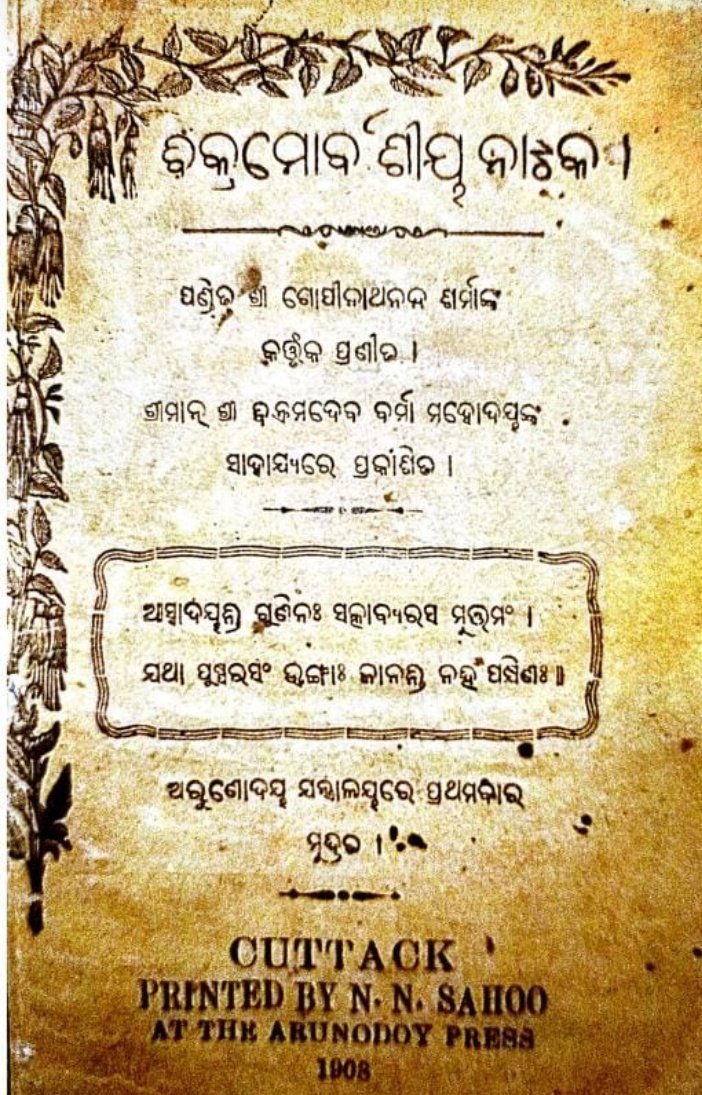 ବିକ୍ରମୋର୍ବଶୀୟ ନାଟକ ।
ପଣ୍ଡିତ ଶ୍ରୀ ଗୋପୀନାଥନନ୍ଦ ଶର୍ମାଙ୍କ
କର୍ତ୍ତୃକ ପ୍ରଣୀତ ।
ଶ୍ରୀମାନ୍ ଶ୍ରୀ ବିକ୍ରମଦେବ ବର୍ମା ମହୋଦୟଙ୍କ
ସାହାଯ୍ୟରେ ପ୍ରକାଶିତ ।
ଆସ୍ୱାଦୟନ୍ତି ଗୁଣିନଃ ସତ୍କାବ୍ୟରସ ମୁତ୍ତମଂ ।
ଯଥା ପୁଷ୍ପରସଂ ଭୃଙ୍ଗାଃ ଜାନନ୍ତି ନହି ପକ୍ଷିଣଃ ॥
ଅରୁଣୋଦୟ ଯନ୍ତ୍ରାଳୟରେ ପ୍ରଥମବାର
ମୁଦ୍ରିତ ।
CUTTACK
PRINTED BY N. N. SAHOO
AT THE ARUNODOY PRESS
1908